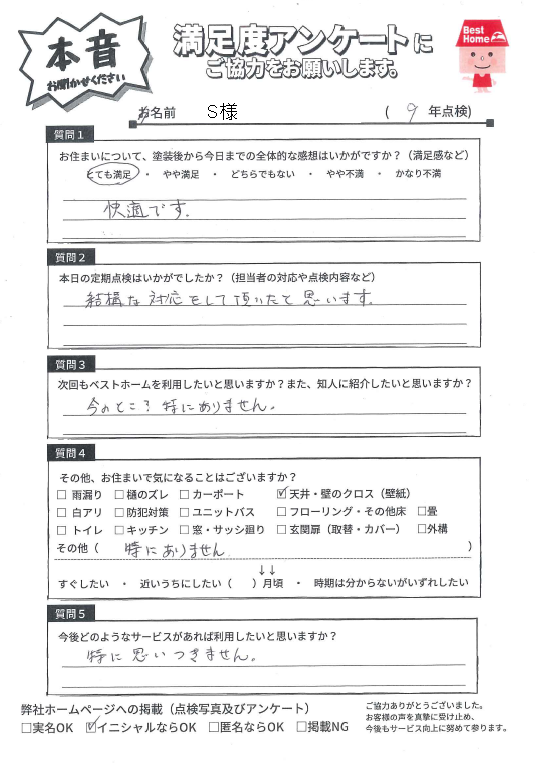 本音
お聞かせください
満足度アンケートに
ご協力をお願いします。
Best Home
お名前 S様 ( 9 年点検)
質問1
お住まいについて、塗装後から今日までの全体的な感想はいかがですか?(満足感など)
とても満足 ・ やや満足 ・ どちらでもない ・ やや不満 ・ かなり不満
快適です。
質問2
本日の定期点検はいかがでしたか?(担当者の対応や点検内容など)
結構な対応をして頂いたと思います。
質問3
次回もベストホームを利用したいと思いますか?また、知人に紹介したいと思いますか?
今のところ特にありません。
質問4
その他、お住まいで気になることはございますか?
□ 雨漏り □ 樋のズレ □ カーポート ☑ 天井・壁のクロス(壁紙)
□ 白アリ □ 防犯対策 □ ユニットバス □ フローリング・その他床 □畳
□ トイレ □ キッチン □ 窓・サッシ廻り □ 玄関扉(取替・カバー) □外構
その他( 特にありません )
↓↓
すぐしたい ・ 近いうちにしたい( )月頃 ・ 時期は分からないがいずれしたい
質問5
今後どのようなサービスがあれば利用したいと思いますか?
特に思いつきません。
弊社ホームページへの掲載(点検写真及びアンケート)
□実名OK ☑イニシャルならOK □匿名ならOK □掲載NG
ご協力ありがとうございました。
お客様の声を真摯に受け止め、
今後もサービス向上に努めて参ります。